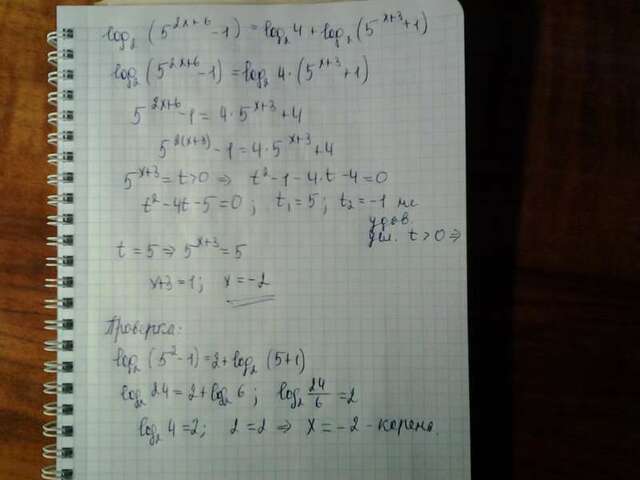 log₂(5^(2x+6) - 1) = log₂4 + log₂(5^(x+3) + 1)
log₂(5^(2x+6) - 1) = log₂4·(5^(x+3) + 1)
5^(2x+6) - 1 = 4·5^(x+3) + 4
5^(2(x+3)) - 1 = 4·5^(x+3) + 4
5^(x+3) = t > 0 ⇒ t² - 1 - 4·t - 4 = 0
t² - 4t - 5 = 0; t₁ = 5; t₂ = -1 не
удов.
усл. t > 0 ⇒
t = 5 ⇒ 5^(x+3) = 5
x+3 = 1; x = -2
Проверка:
log₂(5² - 1) = 2 + log₂(5+1)
log₂24 = 2 + log₂6; log₂ 24/6 = 2
log₂4 = 2; 2 = 2 ⇒ x = -2 - корень.